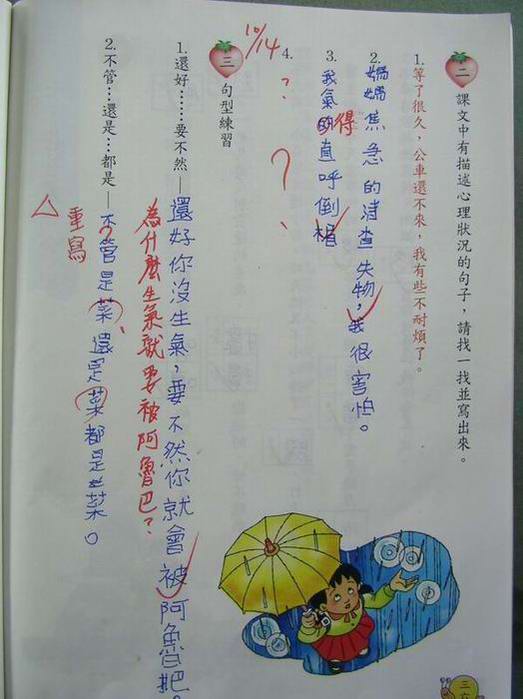 二 課文中有描述心理狀況的句子，請找一找並寫出來。
1.等了很久，公車還不來，我有些不耐煩了。
2.媽媽焦急的清查失物，我很害怕。
3.我氣的直呼倒楣
得
4.？
？
10/14
三 句型練習
1.還好……要不然—還好你沒生氣，要不然你就會被阿魯把。
為什麼生氣就要被阿魯巴？
2.不管…還是…都是—不管是菜還是菜都是菜。
△重寫